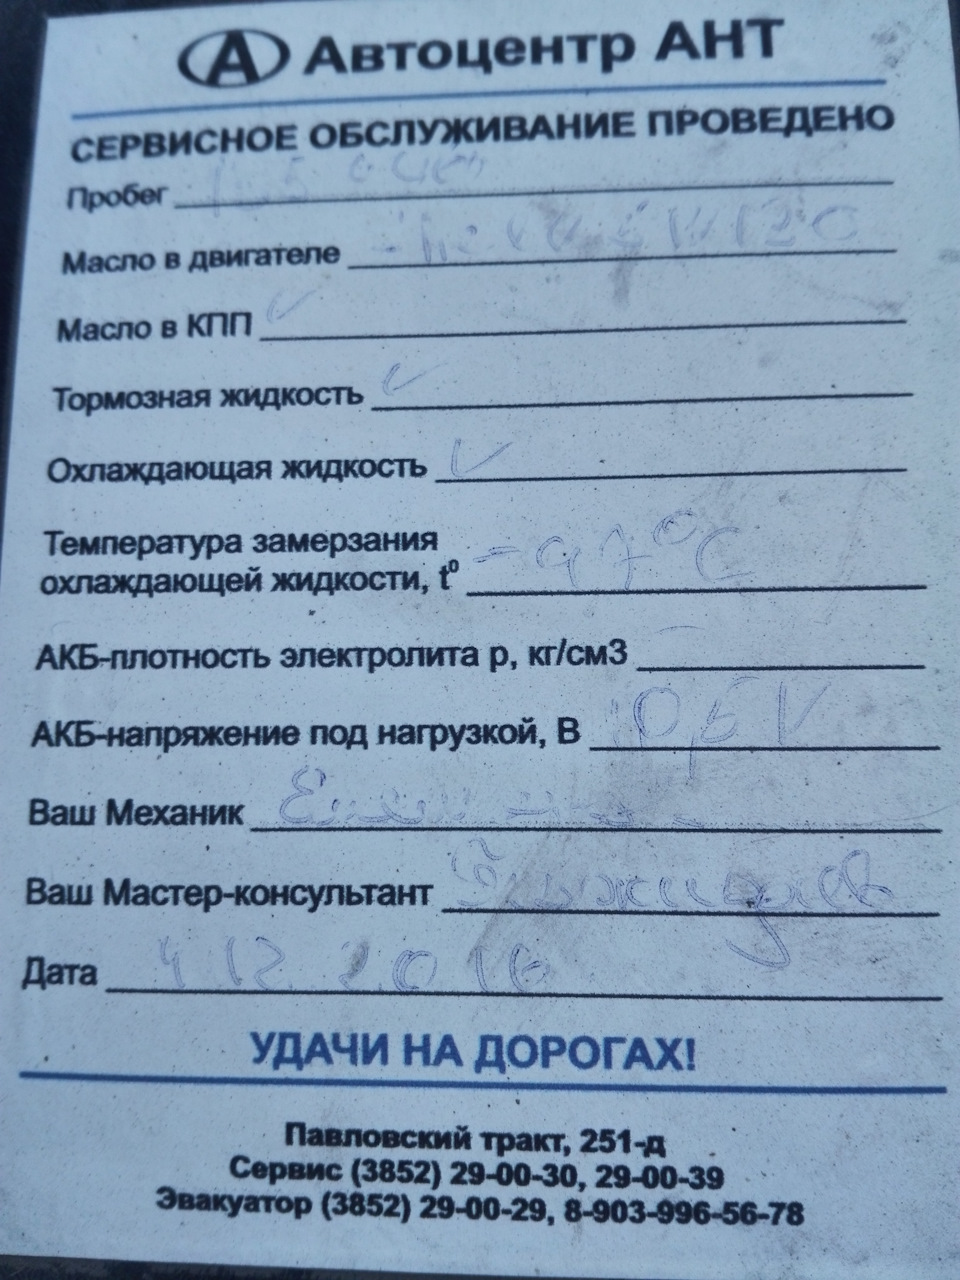 А Автоцентр АНТ
СЕРВИСНОЕ ОБСЛУЖИВАНИЕ ПРОВЕДЕНО
Пробег
Масло в двигателе
Масло в КПП ✓
Тормозная жидкость ✓
Охлаждающая жидкость ✓
Температура замерзания
охлаждающей жидкости, t⁰ °C
АКБ-плотность электролита р, кг/см3
АКБ-напряжение под нагрузкой, В
Ваш Механик
Ваш Мастер-консультант
Дата
УДАЧИ НА ДОРОГАХ!
Павловский тракт, 251-д
Сервис (3852) 29-00-30, 29-00-39
Эвакуатор (3852) 29-00-29, 8-903-996-56-78